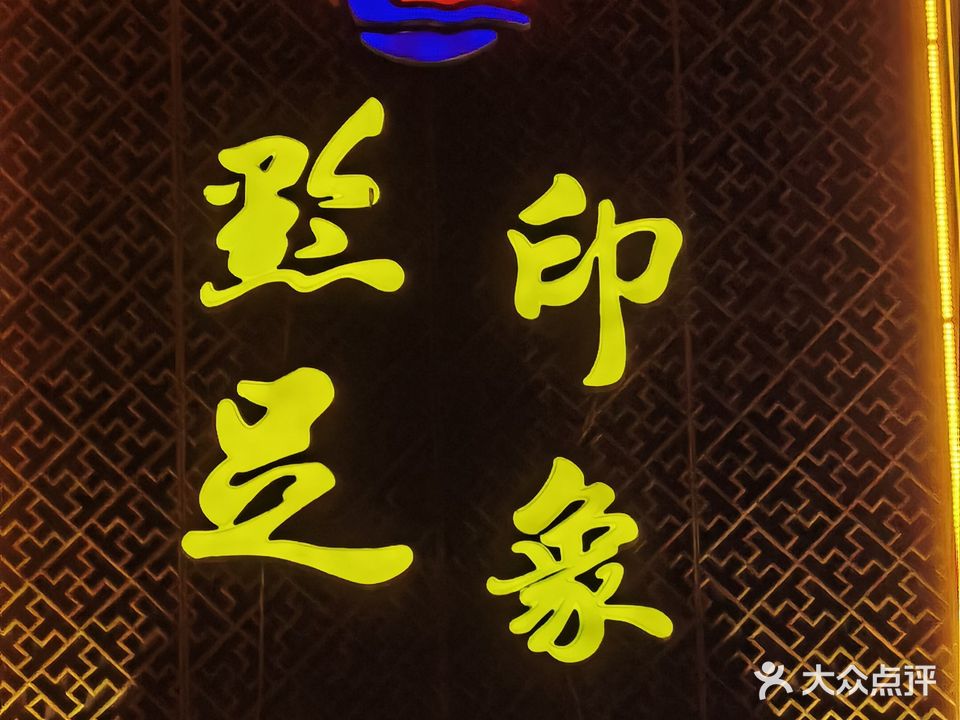 印象
點足
大众点评